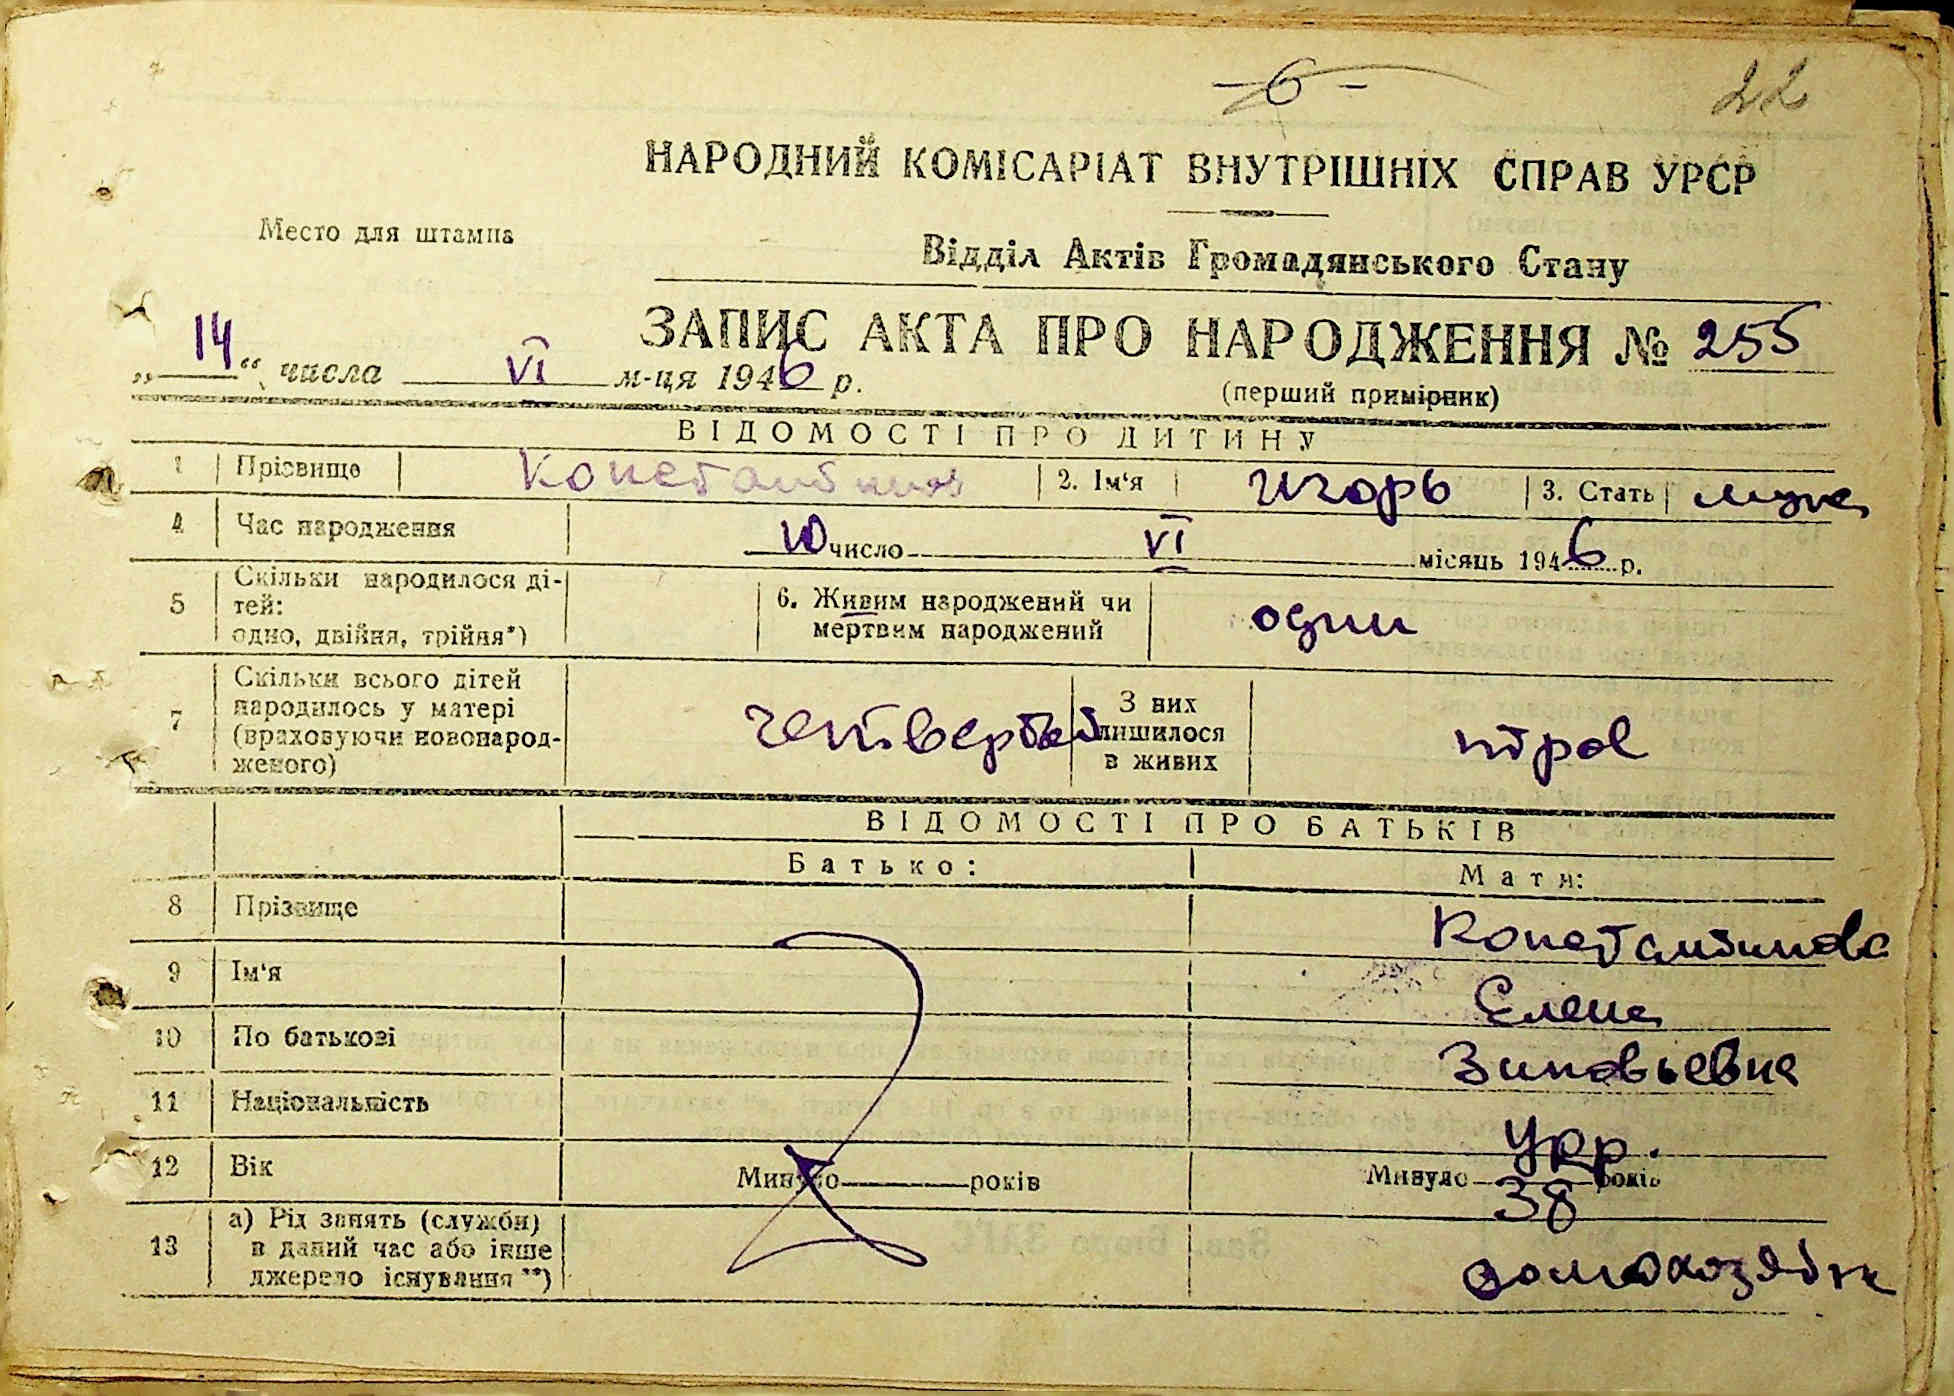 -6-
22
НАРОДНИЙ КОМІСАРІАТ ВНУТРІШНІХ СПРАВ УРСР
Место для штампа
Відділ Актів Громадянського Стану
ЗАПИС АКТА ПРО НАРОДЖЕННЯ № 255
„14“ числа VI м-ця 1946 р.
(перший примірник)
ВІДОМОСТІ ПРО ДИТИНУ
1 Прізвище Константинов 2. Ім‘я Игорь 3. Стать муж.
4 Час народження 10 число VI місяць 1946 р.
5 Скільки народилося ді-
тей:
одно, двійня, трійня*)
6. Живим народжений чи
мертвим народжений
один
7 Скільки всього дітей
народилось у матері
(враховуючи новонарод-
женого)
четвертый
З них
лишилося
в живих
трое
ВІДОМОСТІ ПРО БАТЬКІВ
Батько: Мати:
8 Прізвище Константинова
9 Ім‘я Елена
10 По батькові Зиновьевна
11 Національність укр.
12 Вік Минуло років Минуло 38 років
13 а) Рід занять (служби)
в даний час або інше
джерело існування **)
домохозяйк